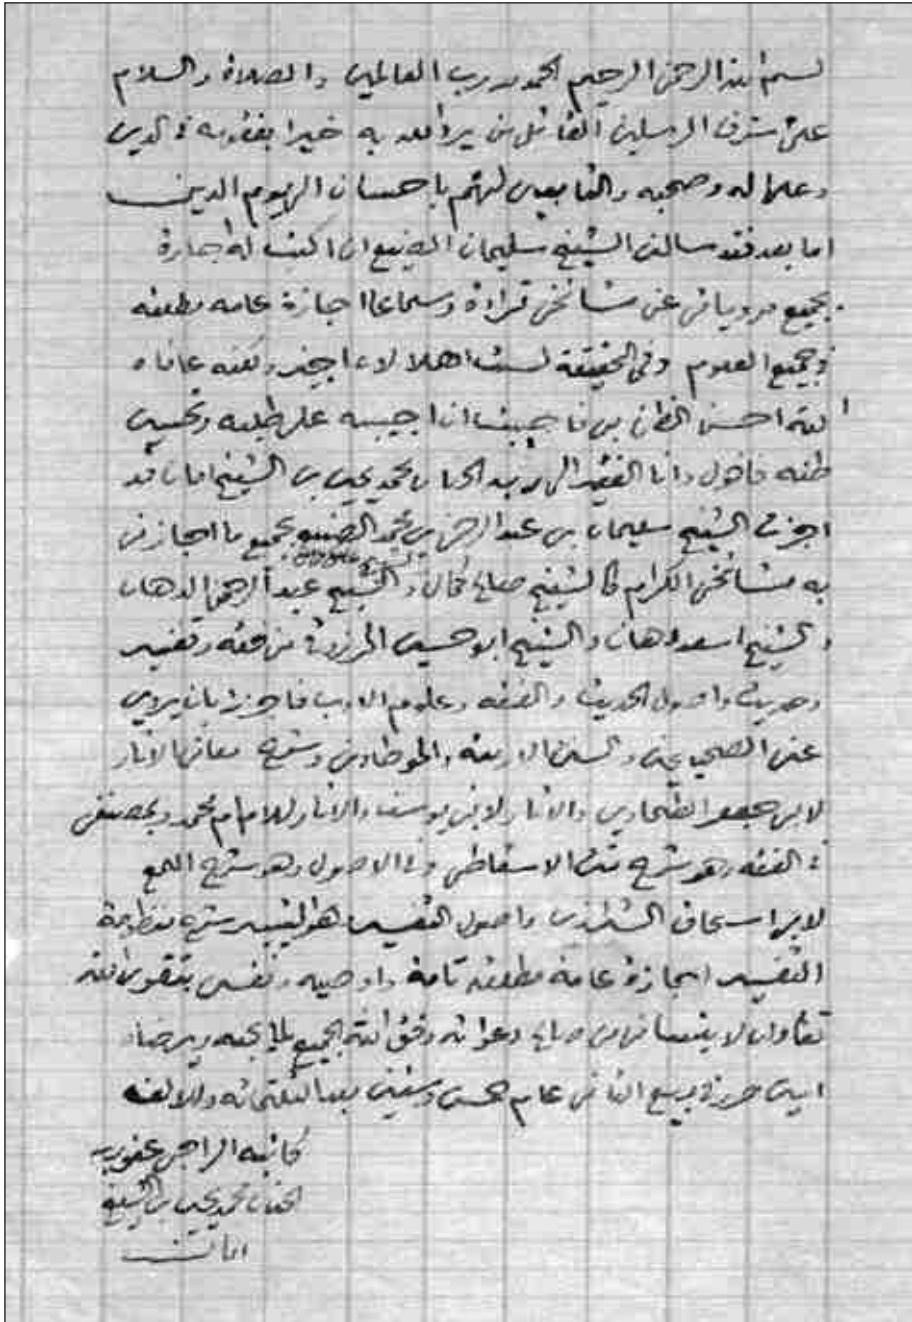 بسم الله الرحمن الرحيم الحمد لله رب العالمين والصلاة والسلام
على أشرف المرسلين القائل من يرد الله به خيرا يفقهه في الدين
وعلى اله وصحبه والتابعين لهم باحسان الى يوم الدين
اما بعد فقد سالنى الشيخ سليمان الصنيع ان اكتب له اجازة
بجميع مروياتى عن مشائخى قراءة وسماعا اجازة عامه مطلقه
فى جميع العلوم وفى الحقيقة لست اهلا لاء اجيز ولكنه عافاه
الله احسن الظن بى فاحببت ان اجيبه على طلبه وتحسين
ظنه فاقول وانا الفقير الى ربه الحنان محمد يحيى بن الشيخ امان قد
اجزت الشيخ سليمان بن عبد الرحمن بن محمد الصنيع بجميع ما اجازنى
به مشائخى الكرام كالشيخ صالح كمال والشيخ عبد الرحمن الدهان
والشيخ اسعد دهان والشيخ ابو حسين المرزوقى من فقه وتفسير
وحديث واصول الحديث والفقه وعلوم الادب فاجزته بان يروى
عنى الصحيحين والسنن الاربعه والموطاء وشرح معانى الاثار
لابى جعفر الطحاوى والاثار لابى يوسف والاثار للامام محمد وبمصنفى
فى الفقه وهو شرح متن الاسقاطى وفى الاصول وهو شرح اللمع
لابى اسحاق الشيرازى واصول التفسير هو التيسير شرح منظومة
التفسير اجازة عامة مطلقة تامة واوصيه ونفسى بتقوى الله
تعالى وان لا ينسانى من صالح دعواته وفق الله الجميع لما يحبه ويرضاه
امين حرر فى ربيع الثانى عام خمس وستين بعد الثلثمائه والالف
كاتبه الراجى عفو ربه
الحنان محمد يحيى بن الشيخ
امان